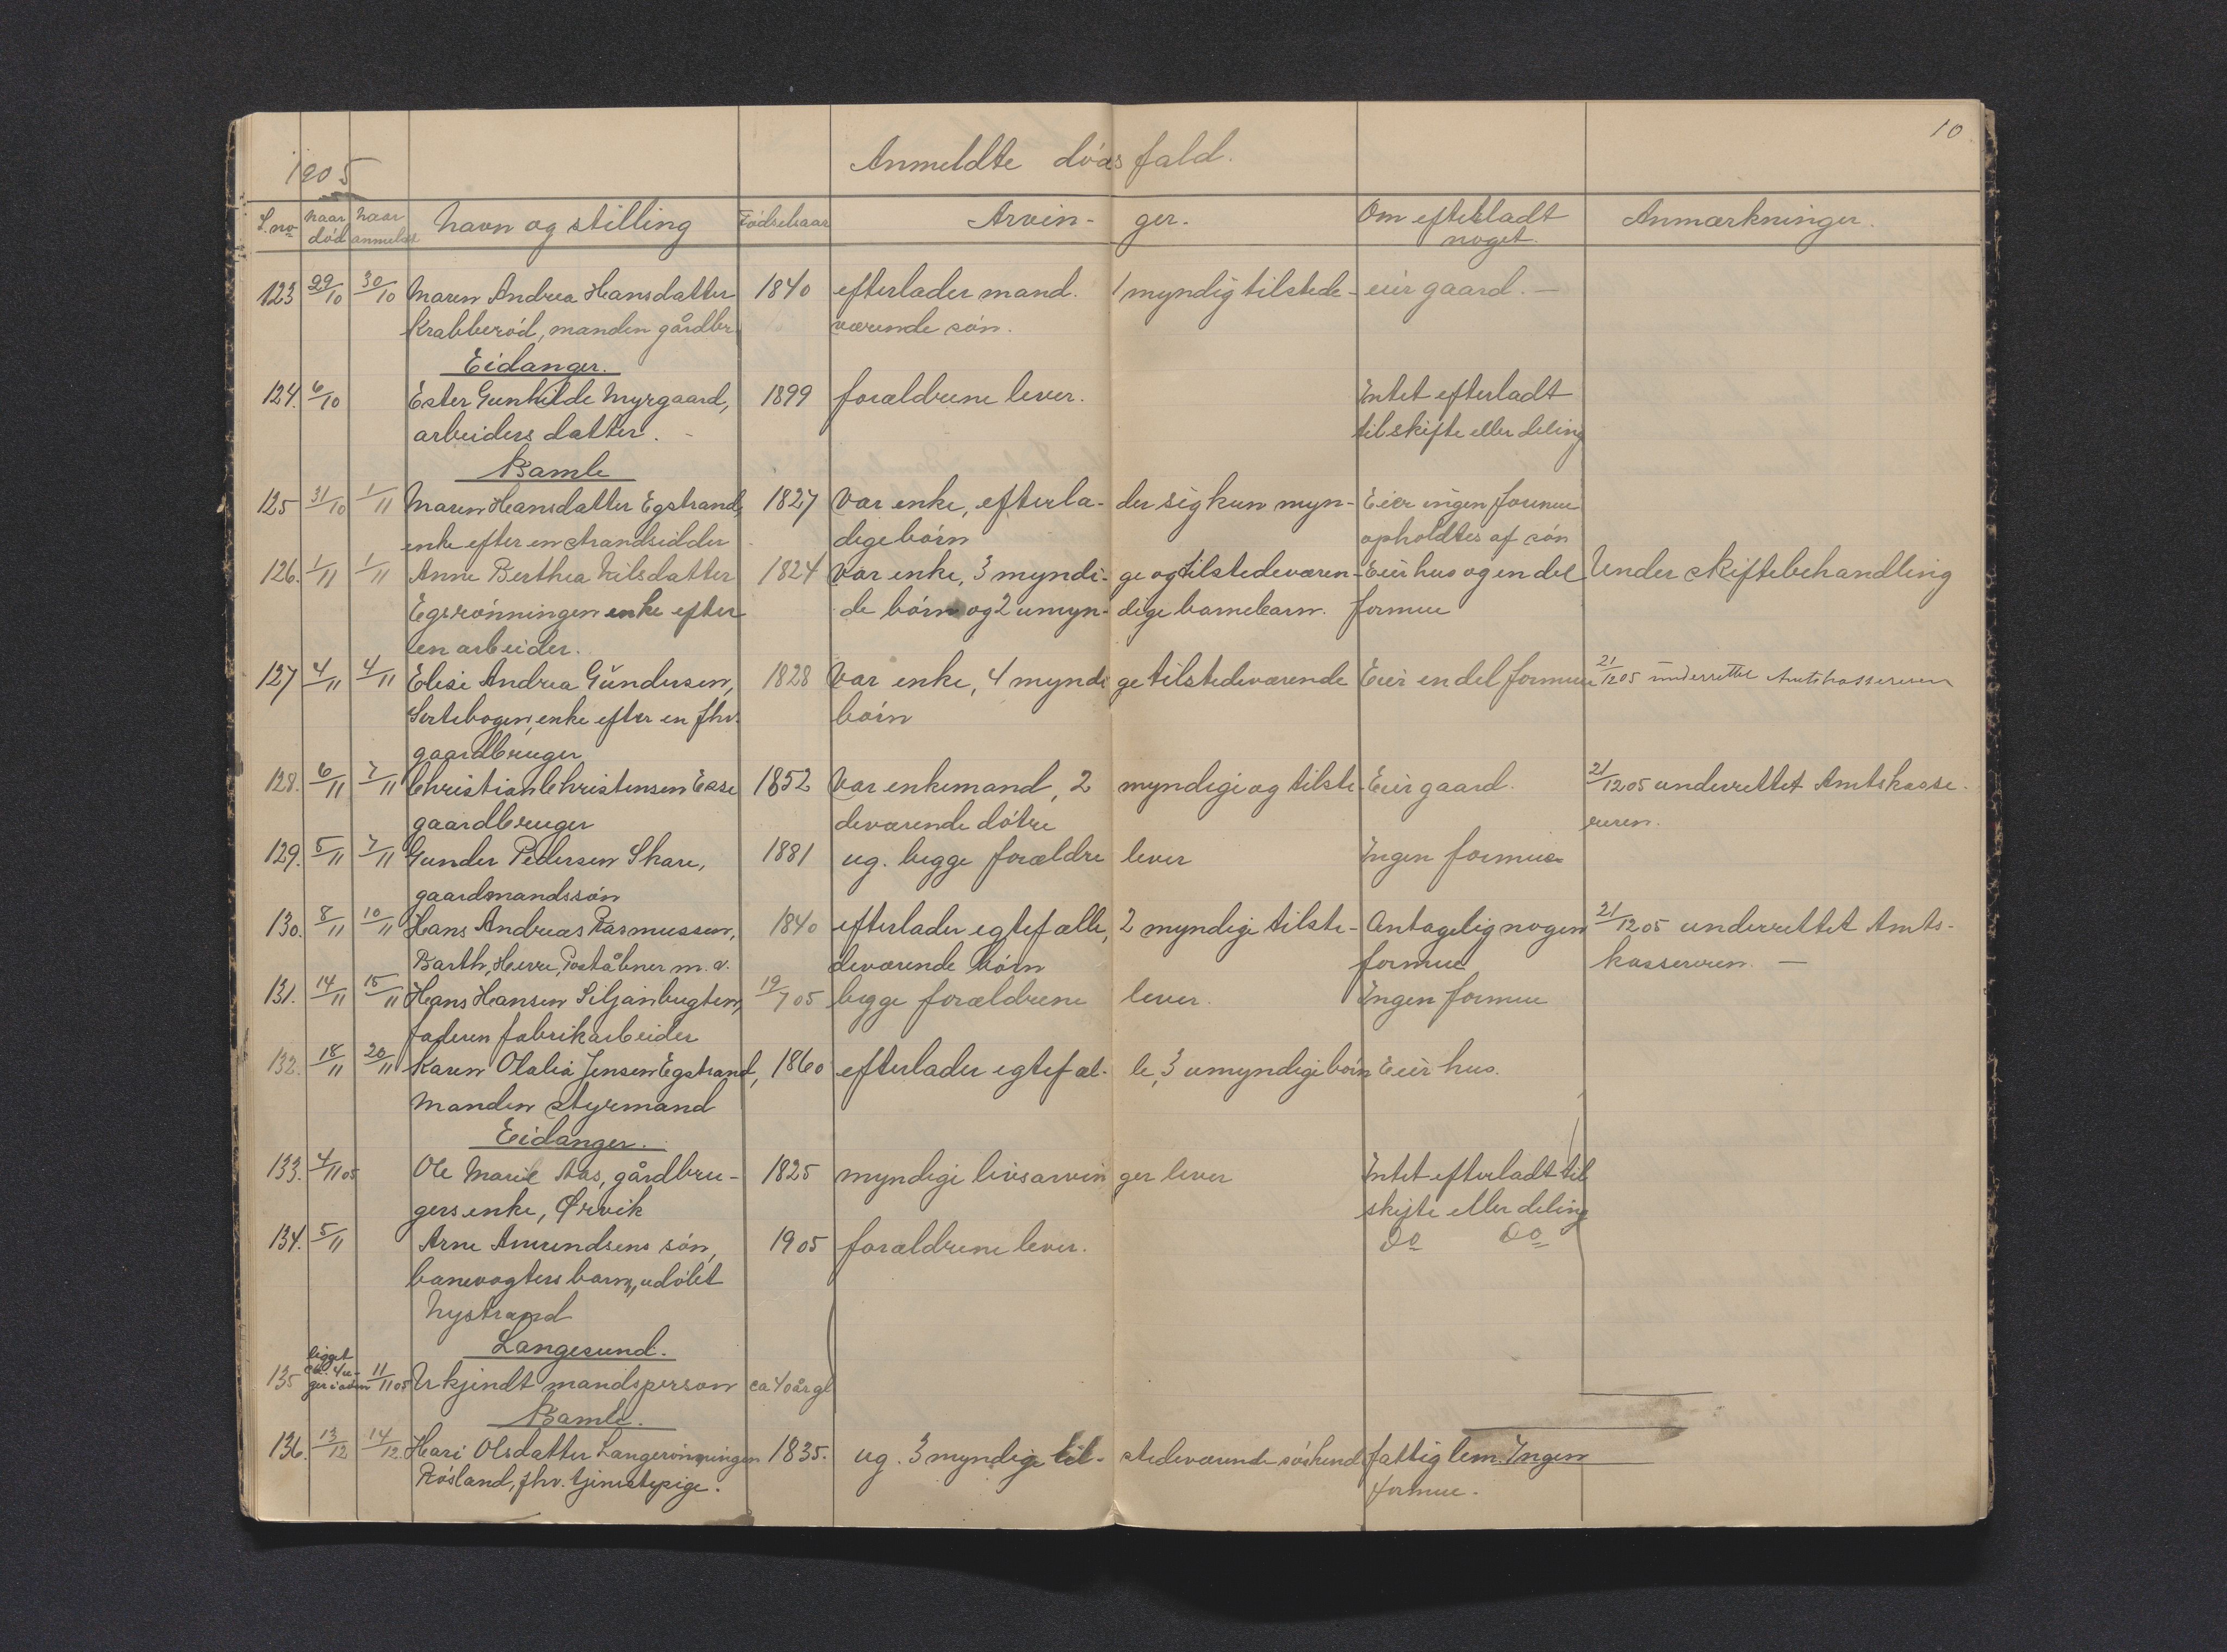 10
1905 Anmeldte dødsfald.
L.no naar død naar anmeldt Navn og stilling Fødselsaar Arvinger. Om efterladt noget. Anmærkninger.
123 29/10 30/10 Maren Andrea Hansdatter 1840 efterlader mand. 1 myndig tilstede- eier gaard. —
Krabberød, manden gårdbr. værende søn.
Eidanger.
124. 6/10 Ester Gunhilde Myrgaard, 1899 forældrene lever. Intet efterladt
arbeiders datter. - til skifte eller deling
Bamle
125 31/10 1/11 Maren Hansdatter Egstrand, 1827 Var enke, efterla- der sig kun myn- Eier ingen formue
enke efter en strandsidder dige børn opholdtes af søn
126. 1/11 1/11 Anne Berthea Nilsdatter 1824 Var enke, 3 myndi- ge og tilstedeværen- Eier hus og en del Under skiftebehandling
Egsrønningen enke efter de børn og 2 umyn- dige barnebarn. formue
en arbeider.
127 4/11 4/11 Elise Andrea Gundersen, 1828 Var enke, 4 myndi ge tilstedeværende Eier en del formue 21/12 05 underrettet Amtskassereren
Sertebogen, enke efter en fhv. børn
gaardbruger
128. 6/11 7/11 Christian Christensen Esse 1852 Var enkemand, 2 myndige og tilste- Eier gaard. 21/12 05 underrettet Amtskasse-
gaardbruger deværende døtre reren.
129. 5/11 7/11 Gunder Pedersen Skare, 1881 ug. begge forældre lever Ingen formue
gaardmandssøn
130. 8/11 10/11 Hans Andreas Rasmussen, 1840 efterlader egtefælle, 2 myndige tilste- Antagelig nogen 21/12 05 underrettet Amts-
Barth, Herre, Poståbner m.v. deværende børn formue kassereren. —
131. 14/11 15/11 Hans Hansen Siljanbugten, 19/7 05 begge forældrene lever. Ingen formue
faderen fabrikarbeider
132. 18/11 20/11 Karen Olalia Jensen Egstrand, 1860 efterlader egtefæl- le, 3 umyndige børn Eier hus.
Manden styrmand
Eidanger.
133. 4/11 05 Ole Marie Aas, gårdbru- 1825 myndige livsarvin ger lever Intet efterladt til
gers enke, Ørvik skifte eller deling
134. 5/11 Arne Amundsens søn, 1905 forældrene lever. Do Do
banevogters barn, udøbt
Nystrand
Langesund.
135 ligget ca. 4 u- ger i søen 11/11 05 Ukjendt mandsperson ca 40 år gl
Bamle.
136. 13/12 14/12. Kari Olsdatter Langerønningen 1835. ug. 3 myndige til- stedeværende søskend fattiglem. Ingen
Røsland, fhv. tjenestepige. formue.